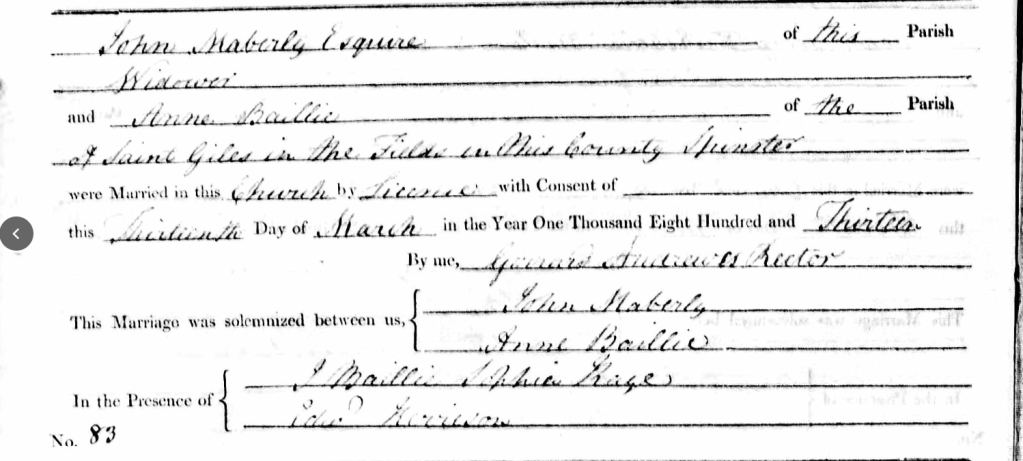 John Maberly Esquire of this Parish
Widower
and Anne Baillie of the Parish
of Saint Giles in the Fields in this County Spinster
were Married in this Church by Licence with Consent of
this Thirteenth Day of March in the Year One Thousand Eight Hundred and Thirteen
By me, Gerrard Andrewes Rector
This Marriage was solemnized between us, John Maberly
Anne Baillie
In the Presence of J Baillie Sophia Kaye
Edwd Kerrison
No. 83